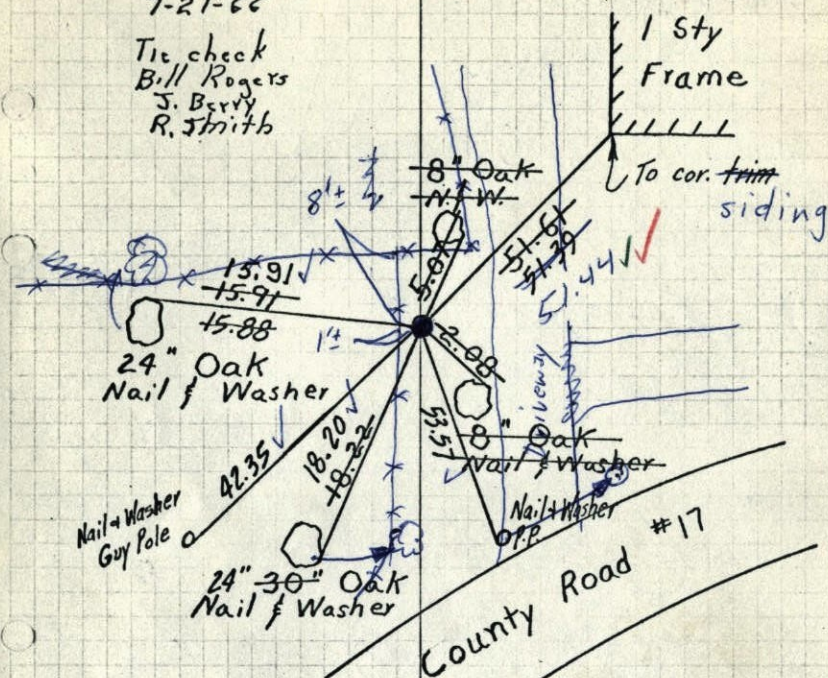 Tie check
Bill Rogers
J. Berry
R. Smith
1 Sty
Frame
To cor. trim
siding
8" Oak
N. & W.
8'±
5.07
51.61
51.39
51.44
15.91
15.91
15.88
24" Oak
Nail & Washer
1'±
2.08
8" Oak
Nail & Washer
Driveway
42.35
18.20
18.22
53.51
Nail & Washer
Guy Pole
Nail & Washer
P.P.
24" 30" Oak
Nail & Washer
County Road #17